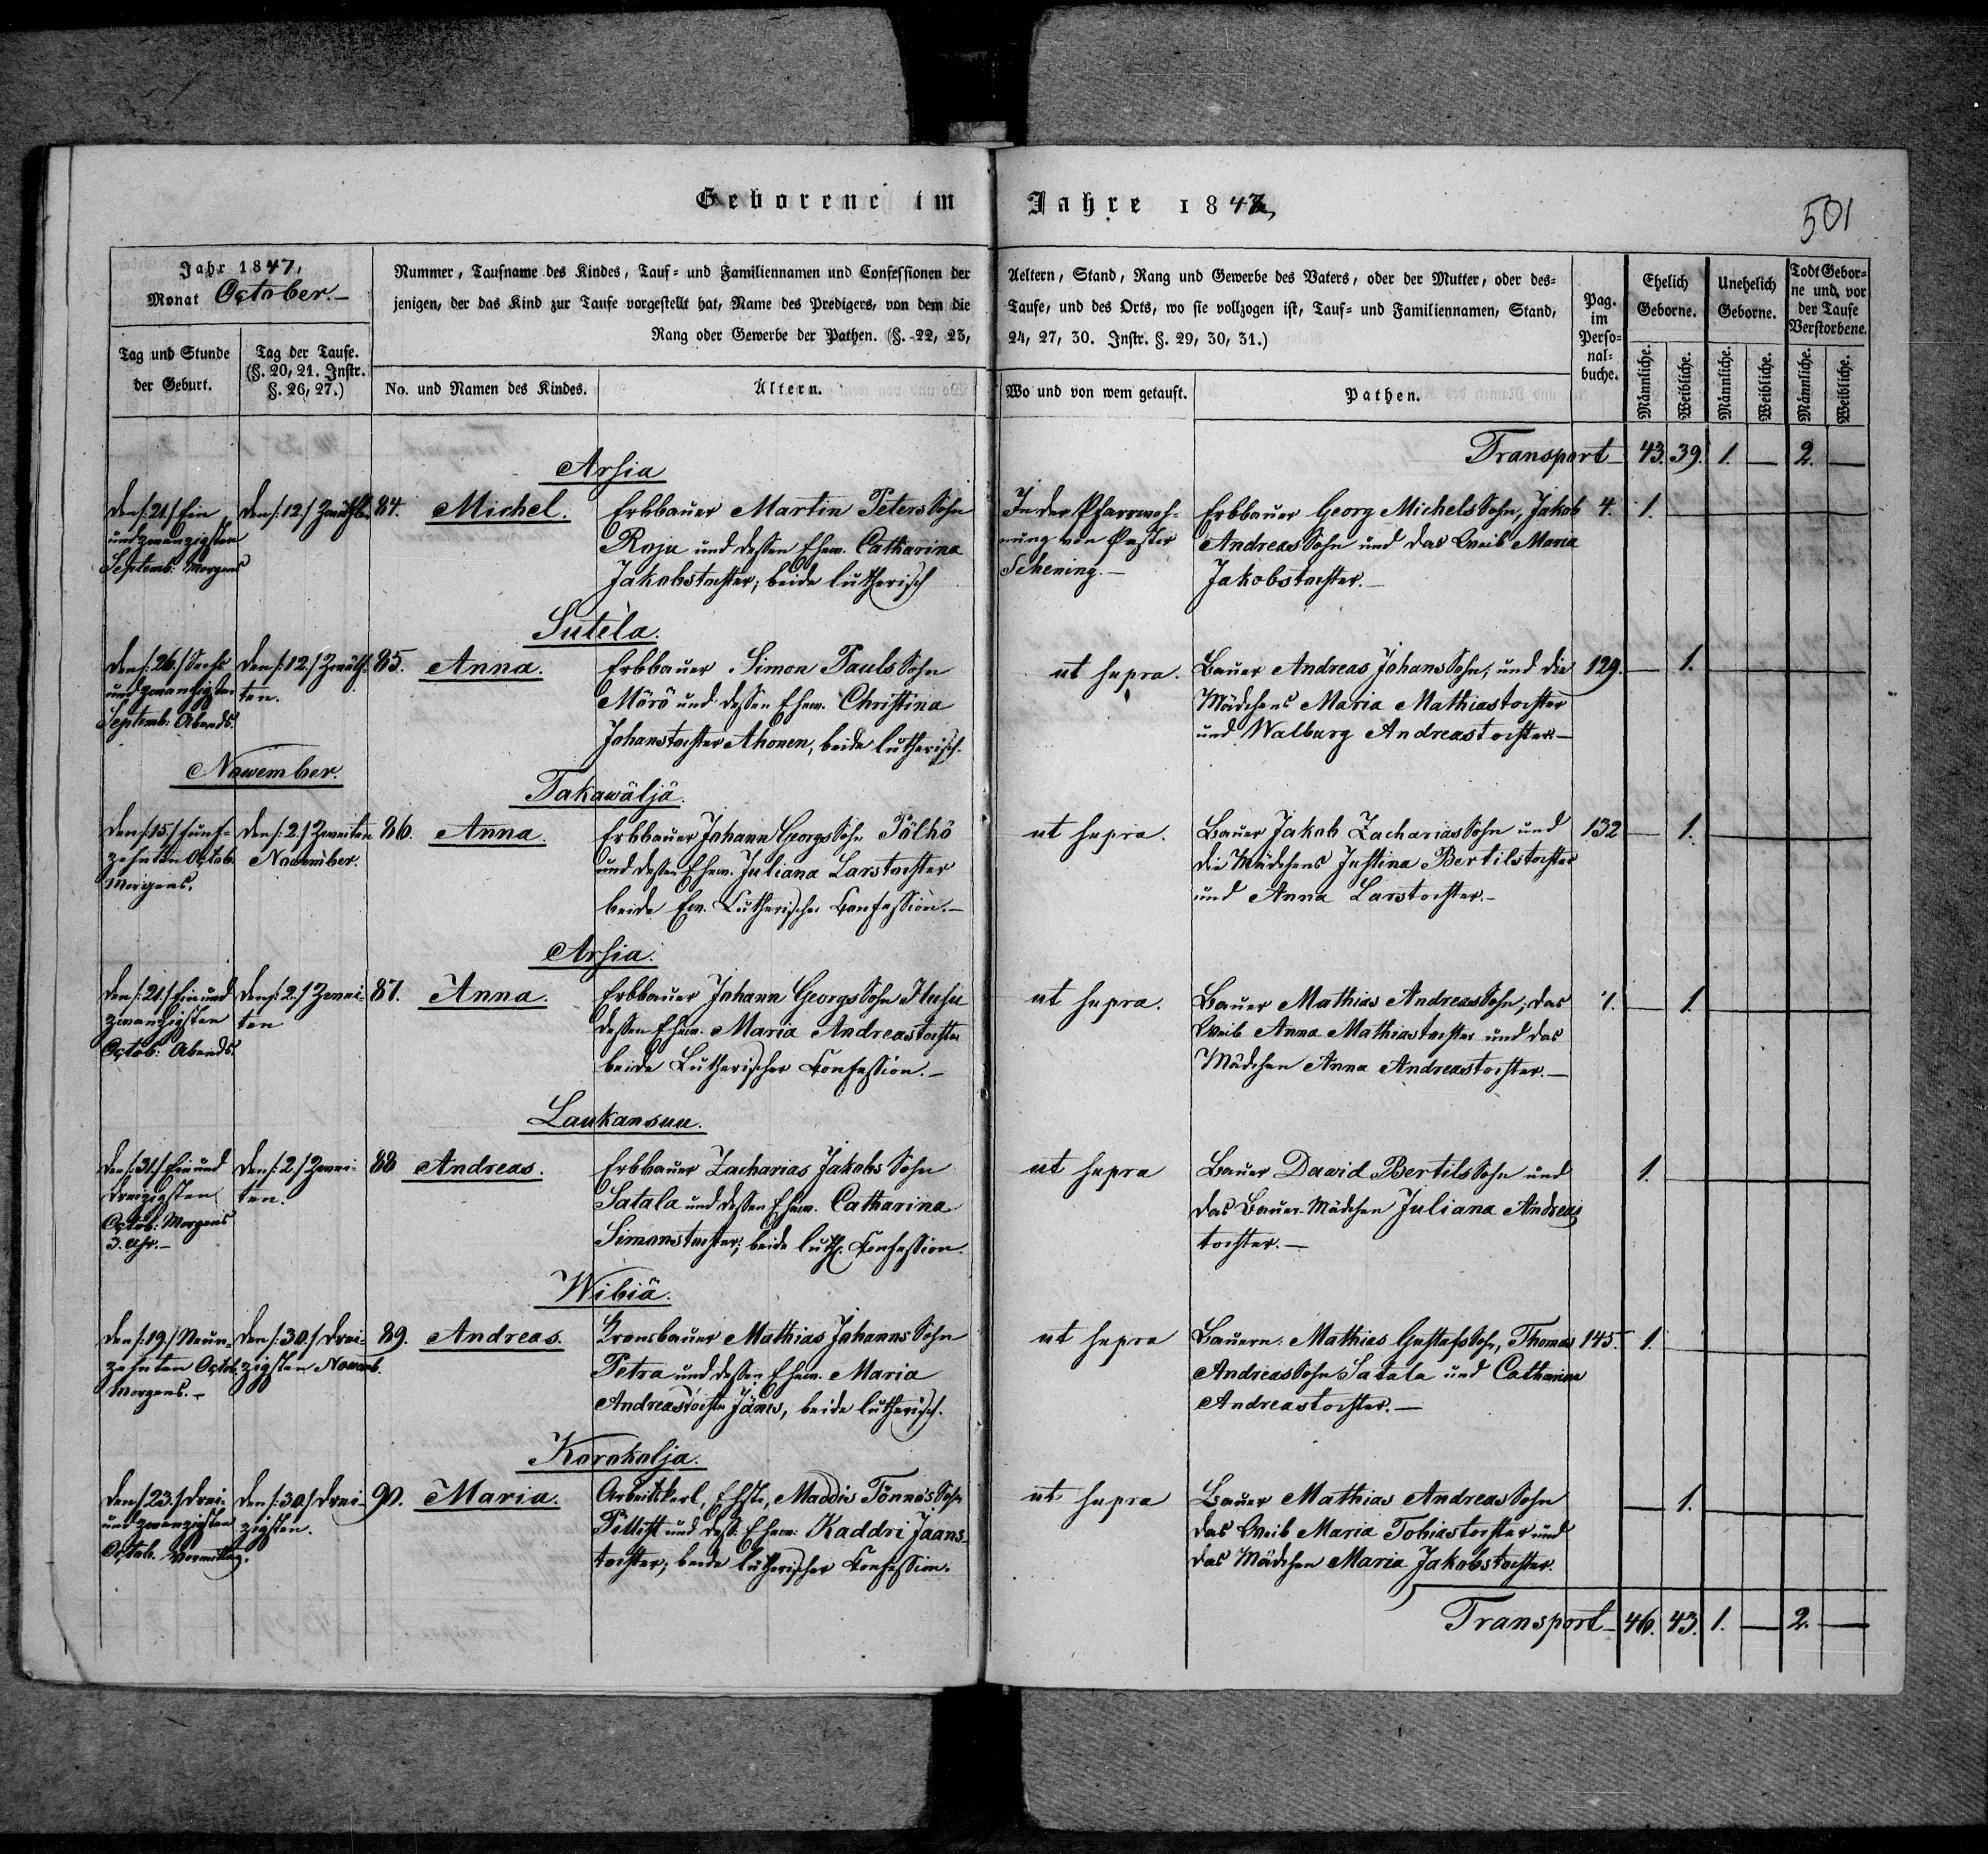 Geborene im Jahre 1847,
501
Jahr 1847,
Monat October.
Tag und Stunde
der Geburt.
Tag der Taufe.
(§. 20, 21. Instr.
§. 26, 27.)
Nummer, Taufname des Kindes, Tauf- und Familiennamen und Confessionen der
jenigen, der das Kind zur Taufe vorgestellt hat, Name des Predigers, von dem die
Rang oder Gewerbe der Pathen. (§. 22, 23,
No. und Namen des Kindes.
Ältern.
Aeltern, Stand, Rang und Gewerbe des Vaters, oder der Mutter, oder des-
Taufe, und des Orts, wo sie vollzogen ist, Tauf- und Familiennamen, Stand,
24, 27, 30. Instr. §. 29, 30, 31.)
Wo und von wem getauft.
Pathen.
Pag.
im
Perso-
nal-
buche.
Ehelich
Geborne.
Unehelich
Geborne.
Todt Gebor-
ne und vor
der Taufe
Verstorbene.
Männliche.
Weibliche.
Männliche.
Weibliche.
Männliche.
Weibliche.
Transport 43. 39. 1. — 2. —
Arsia
den /:21./ Ein
und zwanzigsten
Septemb: Morgens
den /:12./
84. Michel.
Erbbauer Martin Peters Sohn
Roju und dessen Ehew. Catharina
Jakobstochter; beide lutherisch
In der Pfarrwoh-
nung von Pastor
Schening.—
Erbbauer Georg Michels Sohn, Jakob
Andreas Sohn und das Weib Maria
Jakobstochter.—
4. 1.
Sutela.
den /:26./ Sechs
und zwanzigsten
Septemb: Abends.
den /:12./ Zwölf-
ten.
85. Anna.
Erbbauer Simon Pauls Sohn
Mörö und dessen Ehew. Christina
Johanstochter Ahonen, beide lutherisch.
ut supra.
Bauer Andreas Johans Sohn, und die
Mädchens Maria Mathiastochter
und Walburg Andreastochter—
129. — 1.
November.
Takawäljä.
den /:15./ Fünf-
zehnten Octob.
Morgens.
den /:2./ Zweiten
November.
86. Anna.
Erbbauer Johann Georgs Sohn Pölhö
und dessen Ehew. Juliana Larstochter
beide Ev. Lutherischer Confession.—
ut supra.
Bauer Jakob Zacharias Sohn und
die Mädchens Justina Bertilstochter
und Anna Larstochter.—
132 — 1.
Arsia.
den /:21./ Ein und
zwanzigsten
Octob: Abends.
den /:2./ Zwei-
ten
87. Anna.
Erbbauer Johann Georgs Sohn
dessen Ehew. Maria Andreastochter
beide Lutherischer Confession.—
ut supra.
Bauer Mathias Andreas Sohn, das
Weib Anna Mathiastochter und das
Mädchen Anna Andreastochter.—
— 1.
Laukansuu.
den /:31./ Ein und
dreizigsten
Octob: Morgens
3. Uhr.—
den /:2./ Zwei-
ten.
88 Andreas.
Erbbauer Zacharias Jakobs Sohn
Satala und dessen Ehew. Catharina
Simonstochter; beide luth. Confession.
ut supra
Bauer Dawid Bertils Sohn und
das Bauer-Mädchen Juliana Andreas
tochter.—
1.
Wibiä.
den /:19./ Neun-
zehnten Octob.
Morgens.—
den /:30./ Drei-
zigsten Novemb.
89. Andreas.
Kronsbauer Mathias Johanns Sohn
Petra und dessen Ehew. Maria
Andreastochter Jänes, beide lutherisch.
ut supra
Bauern: Mathias Gustafs Sohn, Thomas
Andreas Sohn Satala und Catharina
Andreastochter.—
145. 1.
Korokolja.
den /:23./ Drei
und zwanzigsten
Octob. Vormittag.
den /:30./ Drei-
zigsten.
90. Maria.
Arbeitskerl, Ehste, Maddis Tönnos Sohn
und dess: Ehew: Kaddri Jaans-
tochter; beide lutherischer Confession.
ut supra
Bauer Mathias Andreas Sohn
das Weib Maria Tobiastochter und
das Mädchen Maria Jakobstochter.
— 1.
Transport 46. 43. 1. — 2. —